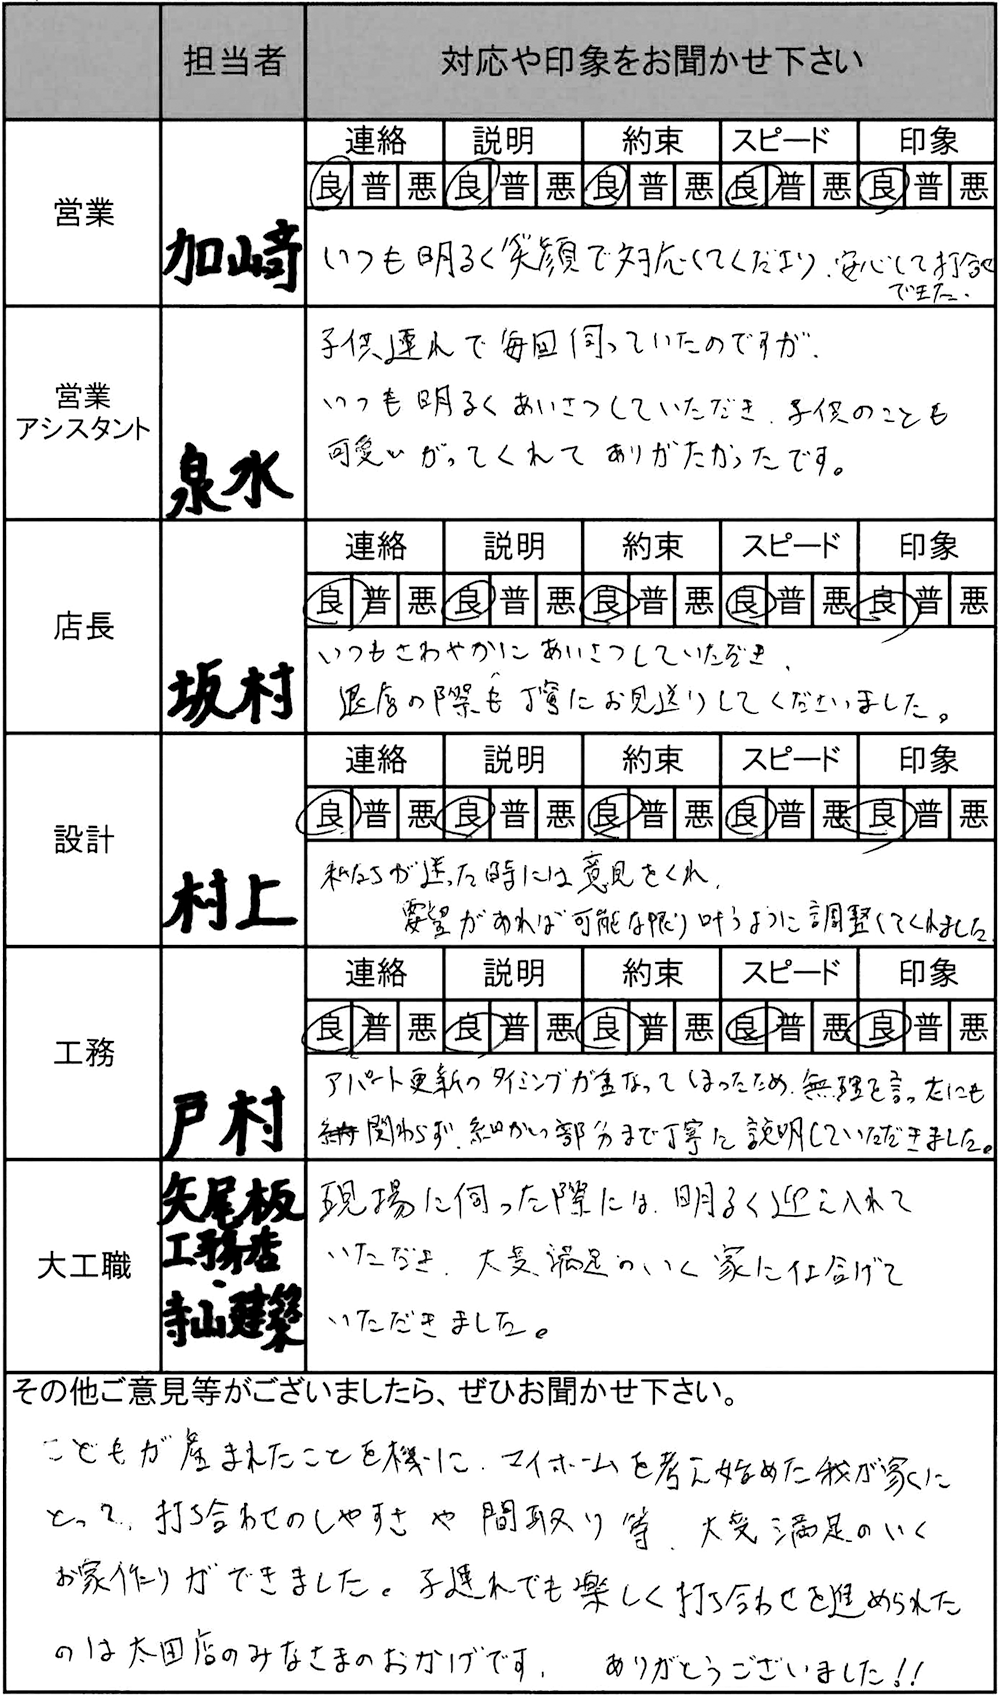 担当者 対応や印象をお聞かせ下さい
営業
加山﨑
連絡 説明 約束 スピード 印象
良 普 悪 良 普 悪 良 普 悪 良 普 悪 良 普 悪
いつも明るく笑顔で対応してくださり、安心して打合せ
できた。
営業
アシスタント
泉水
子供連れで毎回伺っていたのですが、
いつも明るくあいさつしていただき、子供のことも
可愛いがってくれてありがたかったです。
店長
坂村
連絡 説明 約束 スピード 印象
良 普 悪 良 普 悪 良 普 悪 良 普 悪 良 普 悪
いつもさわやかにあいさつしていただき、
退店の際も丁寧にお見送りしてくださいました。
設計
村上
連絡 説明 約束 スピード 印象
良 普 悪 良 普 悪 良 普 悪 良 普 悪 良 普 悪
私たちが迷った時には意見をくれ、
要望があれば可能な限り叶うように調整してくれました
工務
戸村
連絡 説明 約束 スピード 印象
良 普 悪 良 普 悪 良 普 悪 良 普 悪 良 普 悪
アパート更新のタイミングが重なってしまったため、無理を言ったにも
関わらず、細かい部分まで丁寧に説明していただきました。
大工職
矢尾板
工務店
・
寺山建築
現場に伺った際には、明るく迎え入れて
いただき、大変満足のいく家に仕上げて
いただきました。
その他ご意見等がございましたら、ぜひお聞かせ下さい。
こどもが産まれたことを機に、マイホームを考え始めた我が家に
とって、打ち合わせのしやすさや間取り等、大変満足のいく
お家作りができました。子連れでも楽しく打ち合わせを進められた
のは太田店のみなさまのおかげです。 ありがとうございました!!